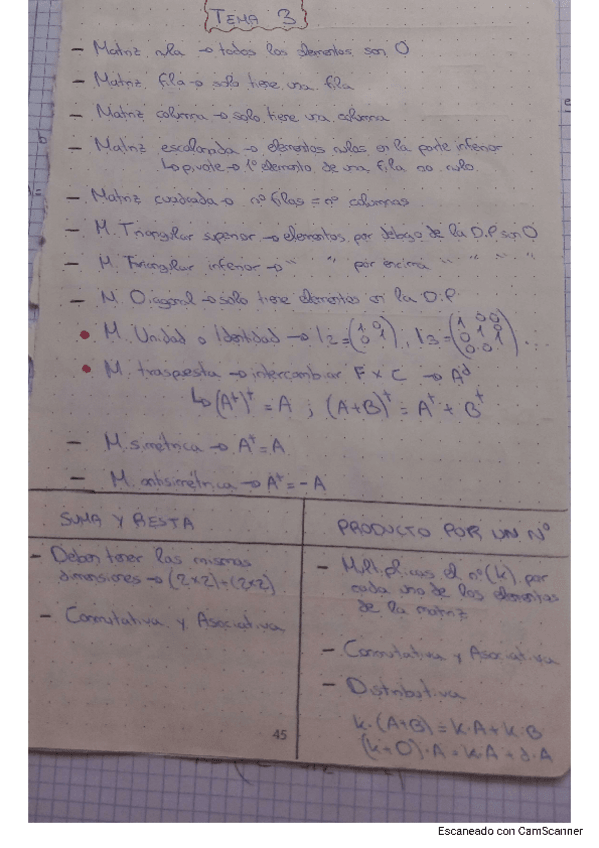 TEMA 3
- Matriz nula → todos los elementos son 0
- Matriz fila → solo tiene una fila
- Matriz columna → solo tiene una columna
- Matriz escalonada → elementos nulos en la parte inferior
↳ pivote → 1º elemento de una fila no nulo
- Matriz cuadrada → nº filas = nº columnas
- M. Triangular superior → elementos por debajo de la D.P son 0
- M. Triangular inferior → " " por encima " " " "
- M. Diagonal → solo tiene elementos en la D.P.
• M. Unidad o Identidad → I2 = (1 0 0 1), I3 = (1 0 0 0 1 0 0 0 1) ...
• M. traspuesta → intercambiar F x C → Aᵈ
↳ (Aᵗ)ᵗ = A ; (A+B)ᵗ = Aᵗ + Bᵗ
- M. simétrica → Aᵗ = A
- M. antisimétrica → Aᵗ = -A
SUMA Y RESTA
- Deben tener las mismas
dimensiones → (2x2)+(2x2)
- Conmutativa y Asociativa
PRODUCTO POR UN Nº
- Multiplicas el nº (k) por
cada uno de los elementos
de la matriz
- Conmutativa y Asociativa
- Distributiva
k·(A+B) = k·A + k·B
(k+d)·A = k·A + d·A
45
Escaneado con CamScanner